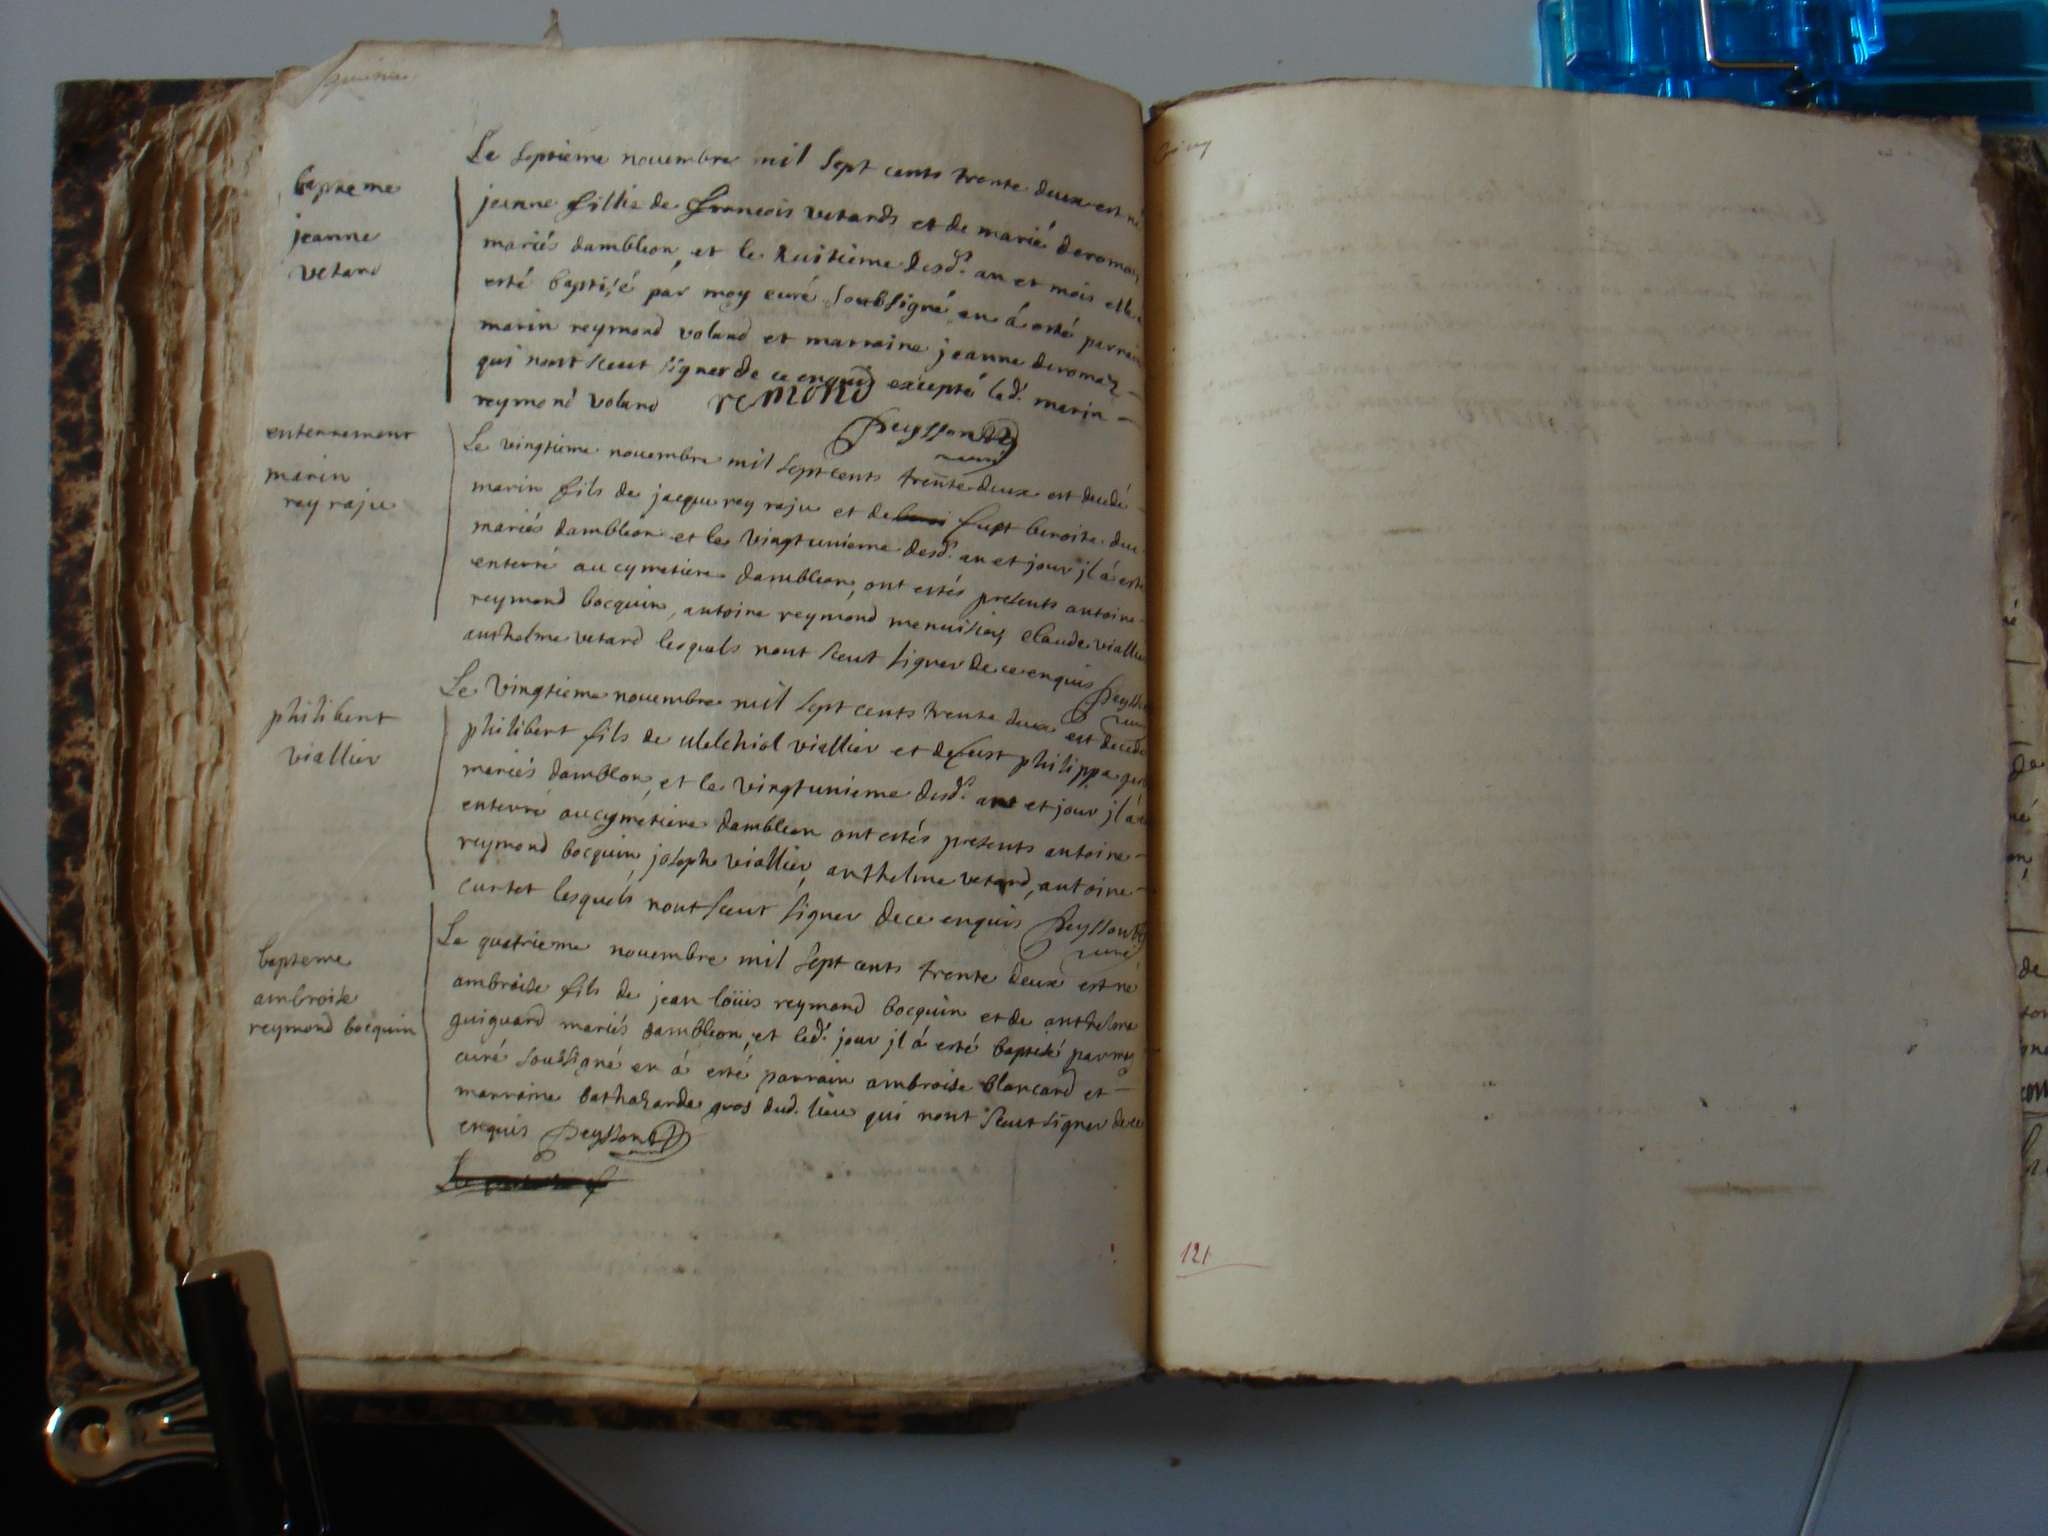 bapteme
jeanne
vetard
Le septieme novembre mil sept cents trente deux est né
jeanne fillie de francois vetard et de marié deromaz
mariés dambleon, et le huitieme desd. an et mois elle a
esté baptisé par moy curé soubsigné en á esté parrain
marin reymond voland et marraine jeanne deromaz
qui nont sceut signer de ce enquis excepté led. marin
reymond voland remond
Peysson
curé
enterrement
marin
rey raju
Le vingtieme novembre mil sept cents trente deux est decedé
marin fils de jacque rey raju et de fust benoite duc
mariés dambleon et le vingtunieme desd. an et jour jl á esté
enterré au cymetiere dambleon, ont estés presents antoine
reymond bocquin, antoine reymond menuisier, claude viallier
anthelme vetard lesquels nont sceut signer de ce enquis Peysson
curé
philibert
viallier
Le vingtieme novembre mil sept cents trente deux est decedé
philibert fils de melchiol viallier et de fust philippa
mariés dambleon, et le vingtunieme desd. an et jour jl á
enterré au cymetiere dambleon ont estés presents antoine
reymond bocquin, joseph viallier, anthelme vetard, antoine
curtet lesquels nont sceut signer de ce enquis Peysson
curé
bapteme
ambroise
reymond bocquin
Le quatrieme novembre mil sept cents trente deux est né
ambroise fils de jean loüis reymond bocquin et de anthelme
guiguard mariés dambleon, et led. jour jl á esté baptisé par moy
curé soussigné en á esté parrain ambroise blancard et
marraine bathazarde gros dud. lieu qui nont sceut signer de ce
enquis Peysson
curé
121